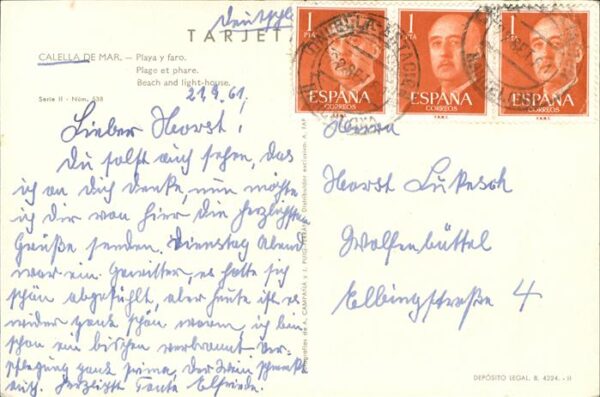 Deutschl
TARJETA
CALELLA DE MAR. — Playa y faro.
Plage et phare.
Beach and light-house.
Serie II - Núm. 438
21.9.61,
Lieber Horst!
Du sollst auch sehen, das
ich an Dich denke, nun möchte
ich dir von hier die herzlichsten
Grüße senden. Dienstag Abend
war ein Gewitter, es hatte sich
schön abgekühlt, aber heute ist es
wieder ganz schön warm, ich bin
schon ein bischen verbrannt Ver-
pflegung ganz prima, der Wein schmeckt
auch. Herzlichst Tante Elfriede.
1
PTA
ESPAÑA
CORREOS
F.N.M.T.
1
PTA
ESPAÑA
CORREOS
F.N.M.T.
1
PTA
ESPAÑA
CORREOS
F.N.M.T.
Herrn
Horst Lukesch
Wolfenbüttel
Elbingstraße 4
DEPÓSITO LEGAL. B. 4224. - II